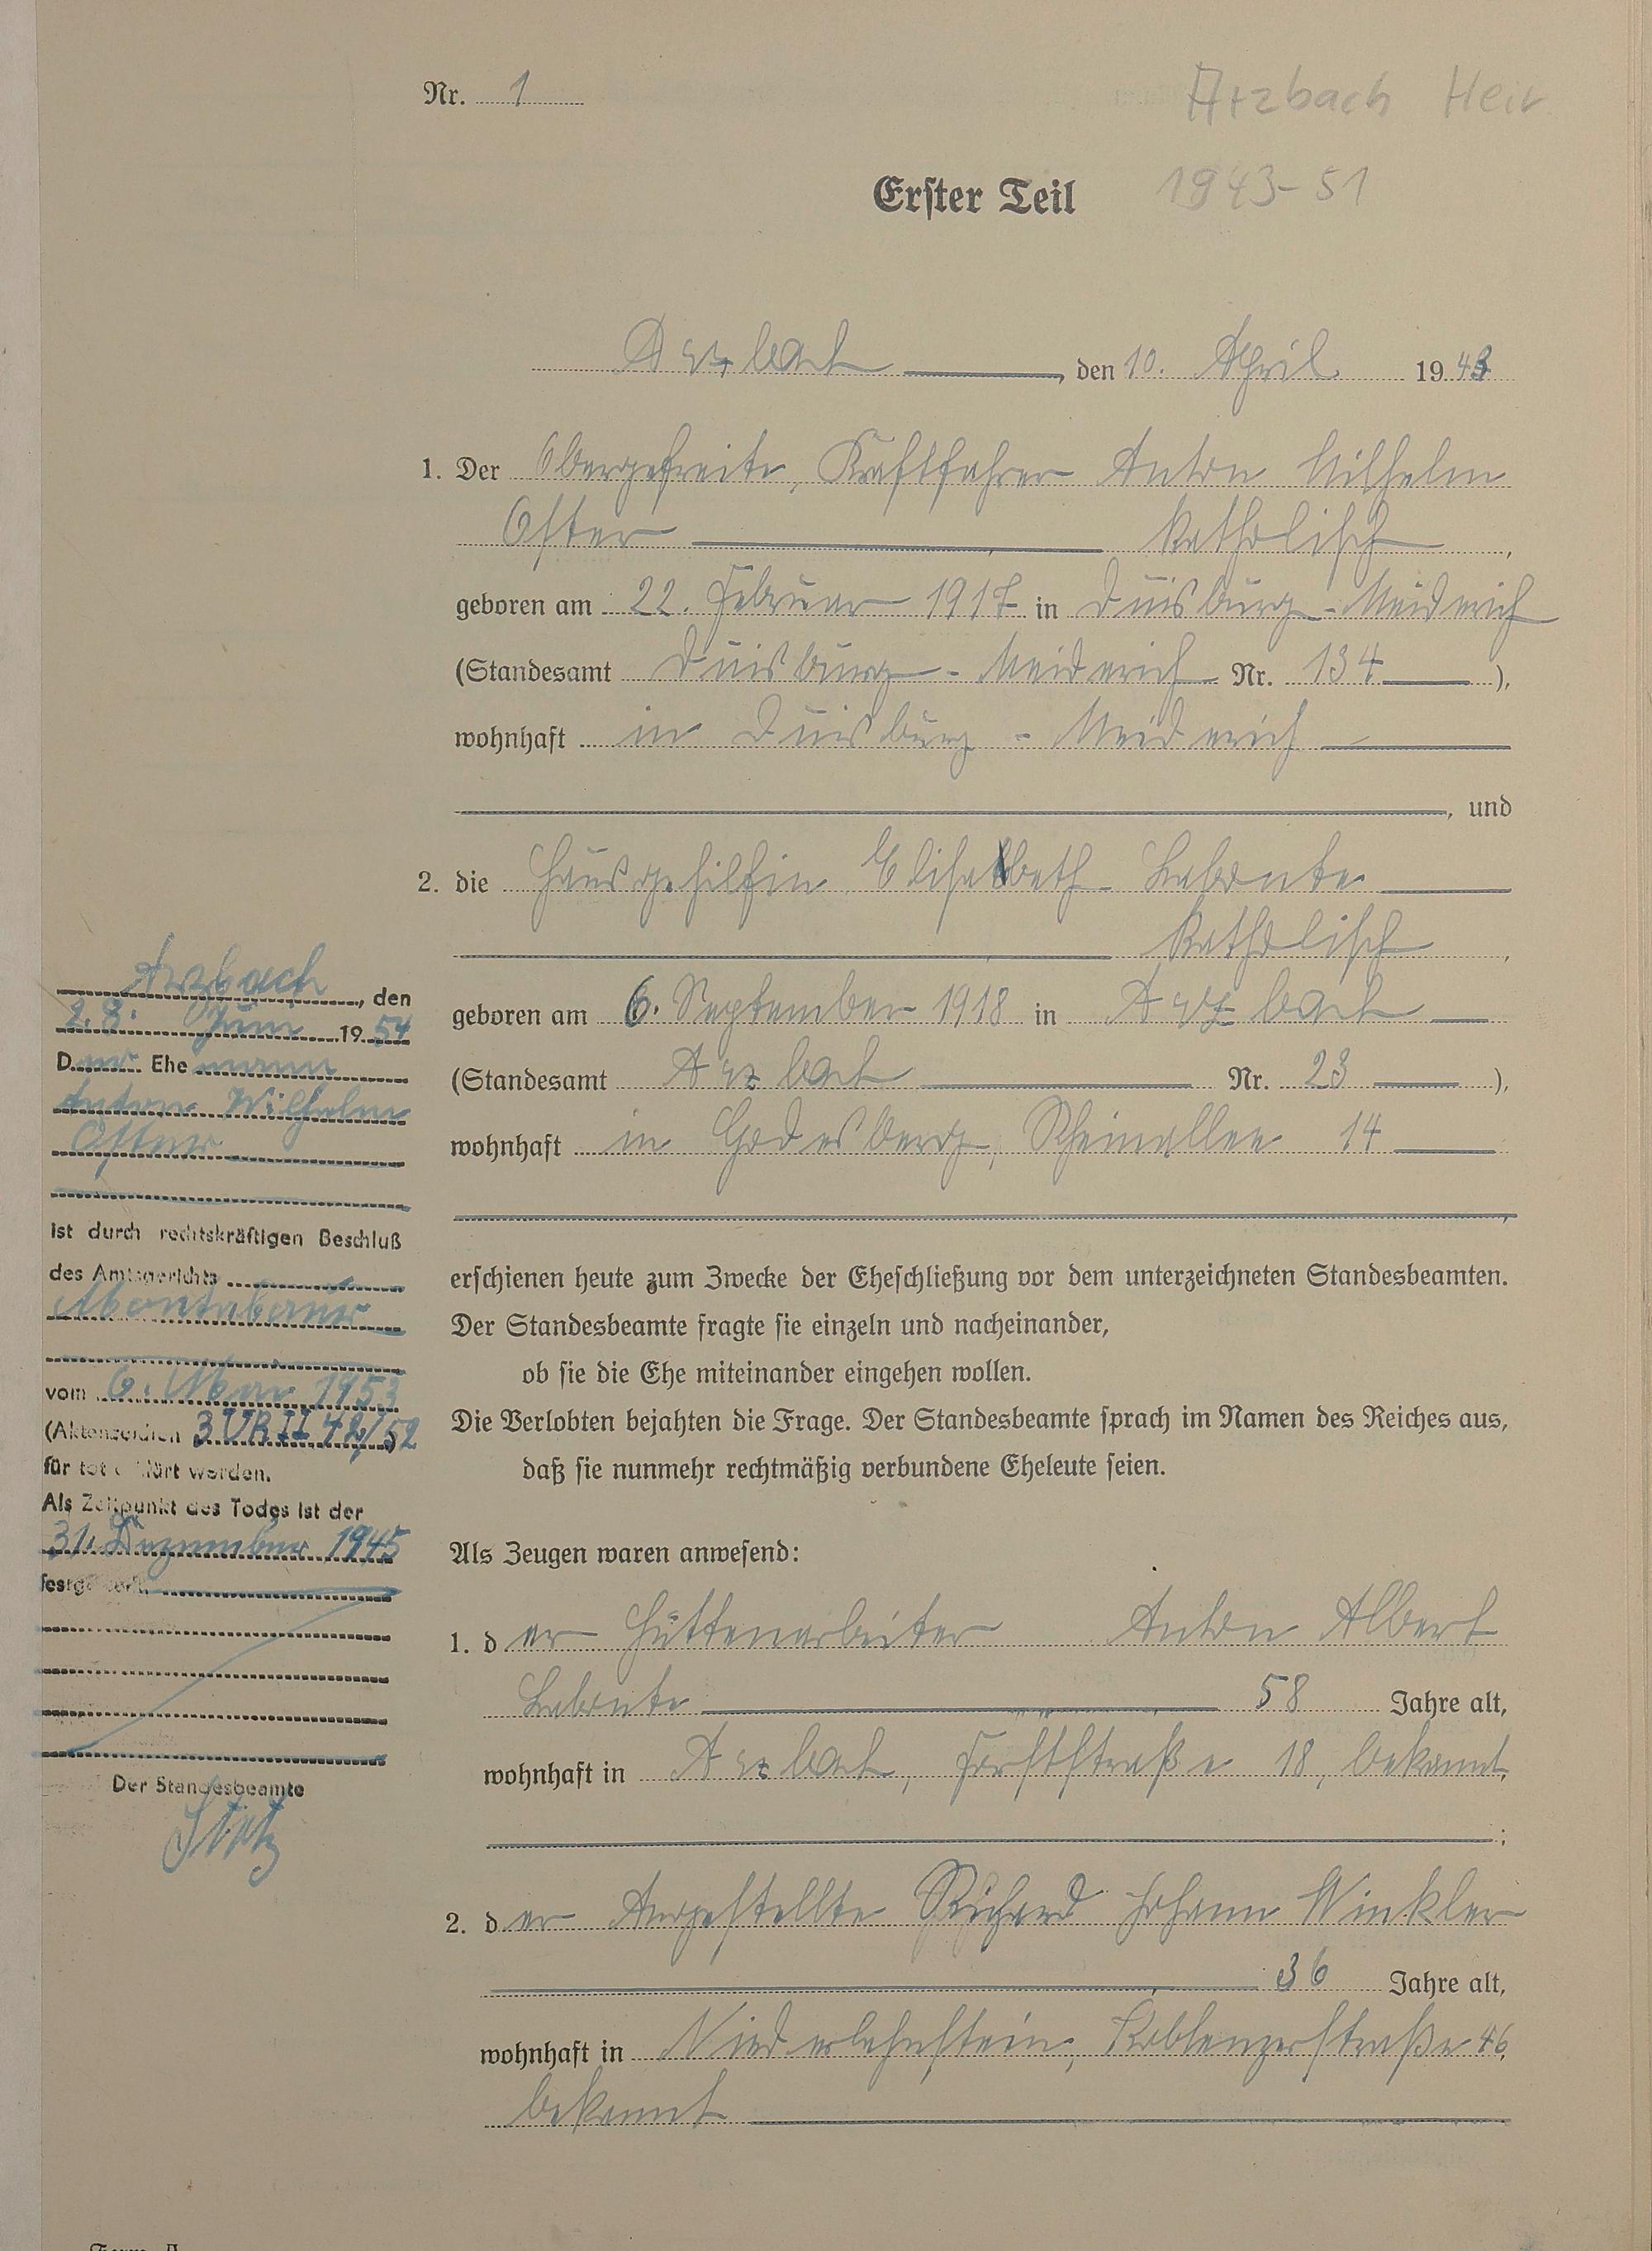 Nr. 1
Arzbach Heir
1943-51
Erster Teil
Arzbach, den 10. April 1943
1. Der Obergefreite, Kraftfahrer Anton Wilhelm
Oster katholisch,
geboren am 22. Februar 1917 in Duisburg-Meiderich
(Standesamt Duisburg-Meiderich Nr. 134),
wohnhaft in Duisburg-Meiderich
, und
2. die Hausgehilfin Elisabeth Labonte
katholisch,
geboren am 6. September 1918 in Arzbach
(Standesamt Arzbach Nr. 23),
wohnhaft in Godesberg, Rheinallee 14
erschienen heute zum Zwecke der Eheschließung vor dem unterzeichneten Standesbeamten.
Der Standesbeamte fragte sie einzeln und nacheinander,
ob sie die Ehe miteinander eingehen wollen.
Die Verlobten bejahten die Frage. Der Standesbeamte sprach im Namen des Reiches aus,
daß sie nunmehr rechtmäßig verbundene Eheleute seien.
Als Zeugen waren anwesend:
1. der Hüttenarbeiter Anton Albert
Labonte 58 Jahre alt,
wohnhaft in Arzbach, Forststraße 18, bekannt,
;
2. der Angestellte Richard Johann Winkler
36 Jahre alt,
wohnhaft in Niederlahnstein, Koblenzerstraße 46,
bekannt
Arzbach, den
28. Juni 1954
Der Ehemann
Anton Wilhelm
Oster
ist durch rechtskräftigen Beschluß
des Amtsgerichts
Montabaur
vom 6. Mar 1953
(Aktenzeichen 3 UR II 42/52)
für tot erklärt worden.
Als Zeitpunkt des Todes ist der
31. Dezember 1945
festgestellt.
Der Standesbeamte